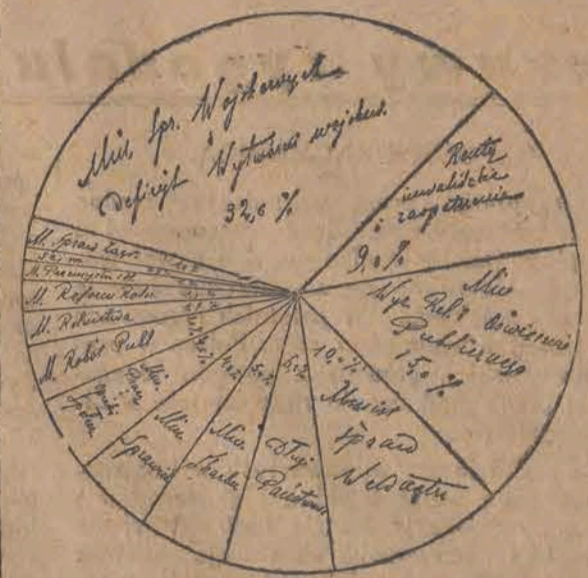 Min. Spr. Wojskowych
i
Deficyt Wytwórni wojskow.
32,6 %
Renty
inwalidzkie
i zaopatrzenia
9,0 %
Min
Wyz. Rel. i Oświecenia
Publicznego
15,0 %
10,0 %
Minist
Spraw
Wewnętrz
5,
Długi
Państwowe
Min.
Skarbu
Min.
Sprawied.
Min.
Pracy
Opieki
Społecz.
M. Robót Publ
M. Rolnictwa
M. Reform Roln.
M. Przemysłu i H
Sejm
M. Spraw Zagr.